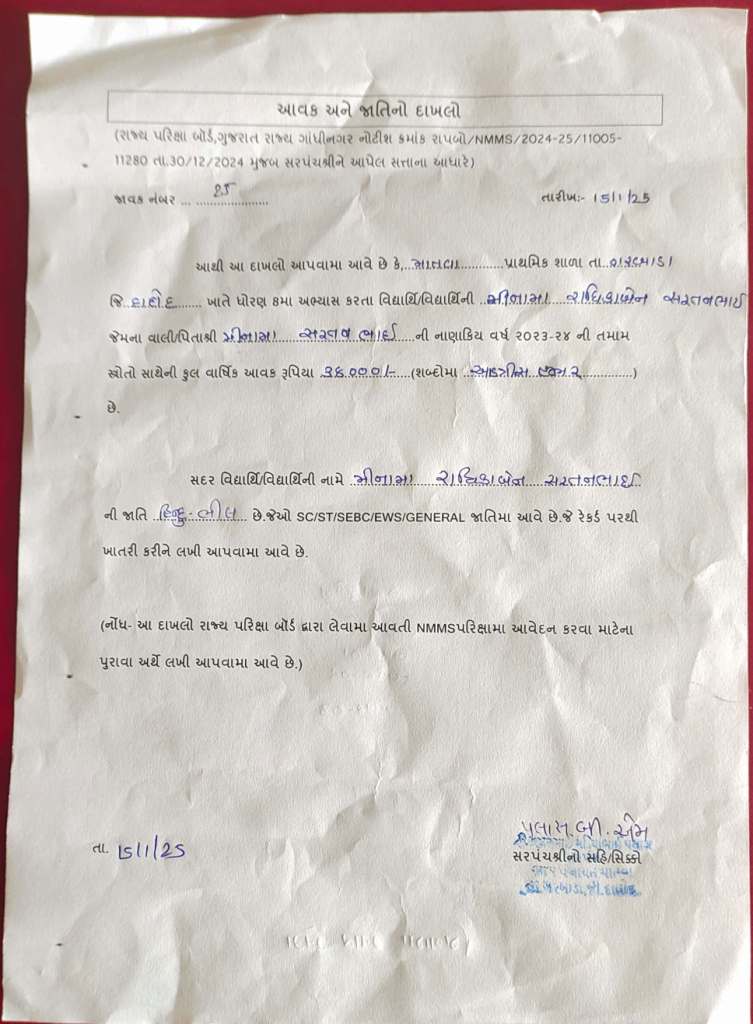 આવક અને જાતિનો દાખલો
(રાજ્ય પરિક્ષા બોર્ડ,ગુજરાત રાજ્ય ગાંધીનગર નોટીશ ક્રમાંક રાપબો/NMMS/2024-25/11005-
11280 તા.30/12/2024 મુજબ સરપંચશ્રીને આપેલ સત્તાના આધારે)
જાવક નંબર ... 25 તારીખ:- 15/1/25
આથી આ દાખલો આપવામા આવે છે કે, માતવા પ્રાથમિક શાળા તા. ગરબાડા
જિ દાહોદ ખાતે ધોરણ ૮મા અભ્યાસ કરતા વિદ્યાર્થિ/વિદ્યાર્થિની મીનામા રાધિકાબેન સરતનભાઇ
જેમના વાલી/પિતાશ્રી મીનામા સરતન ભાઇ ની નાણાકિય વર્ષ ૨૦૨૩-૨૪ ની તમામ
સ્રોતો સાથેની કુલ વાર્ષિક આવક રૂપિયા ૩૮૦૦૦/- (શબ્દોમા આડત્રીસ હજાર)
છે.
સદર વિદ્યાર્થિ/વિદ્યાર્થિની નામે મીનામા રાધિકાબેન સરતનભાઇ
ની જાતિ હિન્દુ-ભીલ છે.જેઓ SC/ST/SEBC/EWS/GENERAL જાતિમા આવે છે.જે રેકર્ડ પરથી
ખાતરી કરીને લખી આપવામા આવે છે.
(નોંધ- આ દાખલો રાજ્ય પરિક્ષા બોર્ડ દ્વારા લેવામા આવતી NMMSપરિક્ષામા આવેદન કરવા માટેના
પુરાવા અર્થે લખી આપવામા આવે છે.)
તા. 15/1/25
પલાસ.બી.એમ
સરપંચશ્રીનો સહિ/સિક્કો
ગ્રામ પંચાયત માતવા
તા.ગરબાડા,જી.દાહોદ